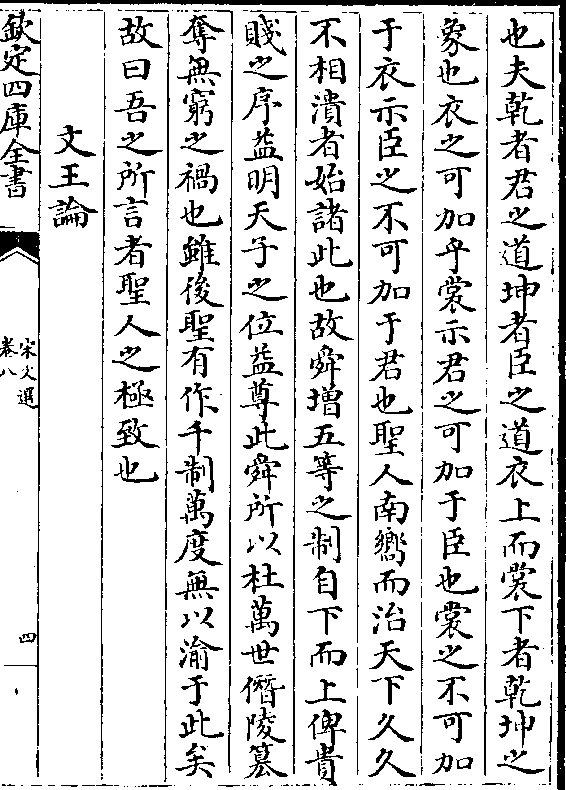 也夫乾者君之道坤者臣之道衣上而裳下者乾坤之
象也衣之可加乎裳示君之可加于臣也裳之不可加
于衣示臣之不可加于君也聖人南嚮而治天下久久
不相瀆者始諸此也故舜增五等之制自下而上俾貴
賤之序益明天子之位益尊此舜所以杜萬世僭陵簒
奪無窮之禍也雖後聖有作千制萬度無以渝于此矣
故曰吾之所言者聖人之極致也
文王論
欽定四庫全書
宋文選
卷八
四